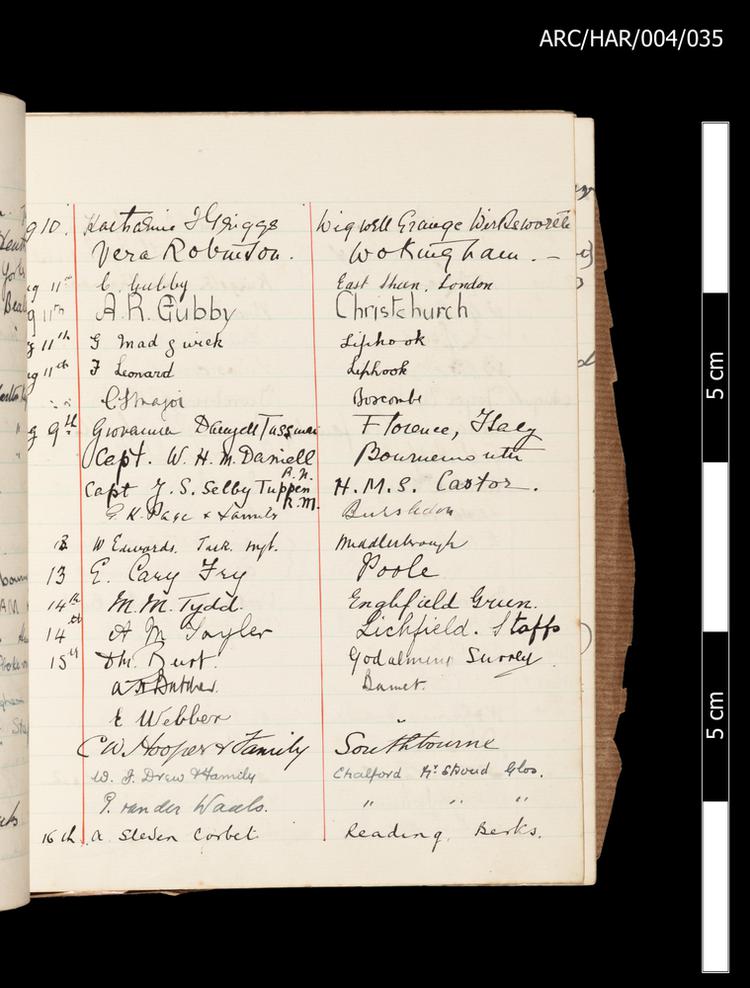 ARC/HAR/004/035
g 10. Katharine F Griggs Wigwell Grange Wirksworth
Vera Robinson. Wokingham. -
ug 11th C. Gubby East Sheen, London
g 11th A.R. Gubby Christchurch
g 11th G Madgwick Liphook
ug 11th F Leonard Liphook
C. Major Boscombe
g 9th Giovanna Florence, Italy
Capt. W. H. M. Daniell R.N. Bournemouth
Capt J. S. Selby Tuppen R.M. H.M.S. Castor.
G. K. Page & Family Bursledon
W Edwards. Middlesbrough
13 E. Cary Fry Poole
14th M. M. Tydd. Englefield Green.
14th A M Sayler Lichfield. Staffs
15th Burt. Godalming Surrey
Butcher. Barnet.
E Webber "
C W Hooper & Family Southbourne
W. J. Drew & Family Chalford Nr Stroud Glos.
P. van der Waals. " " "
16th A Corbet Reading Berks.
5 cm
5 cm